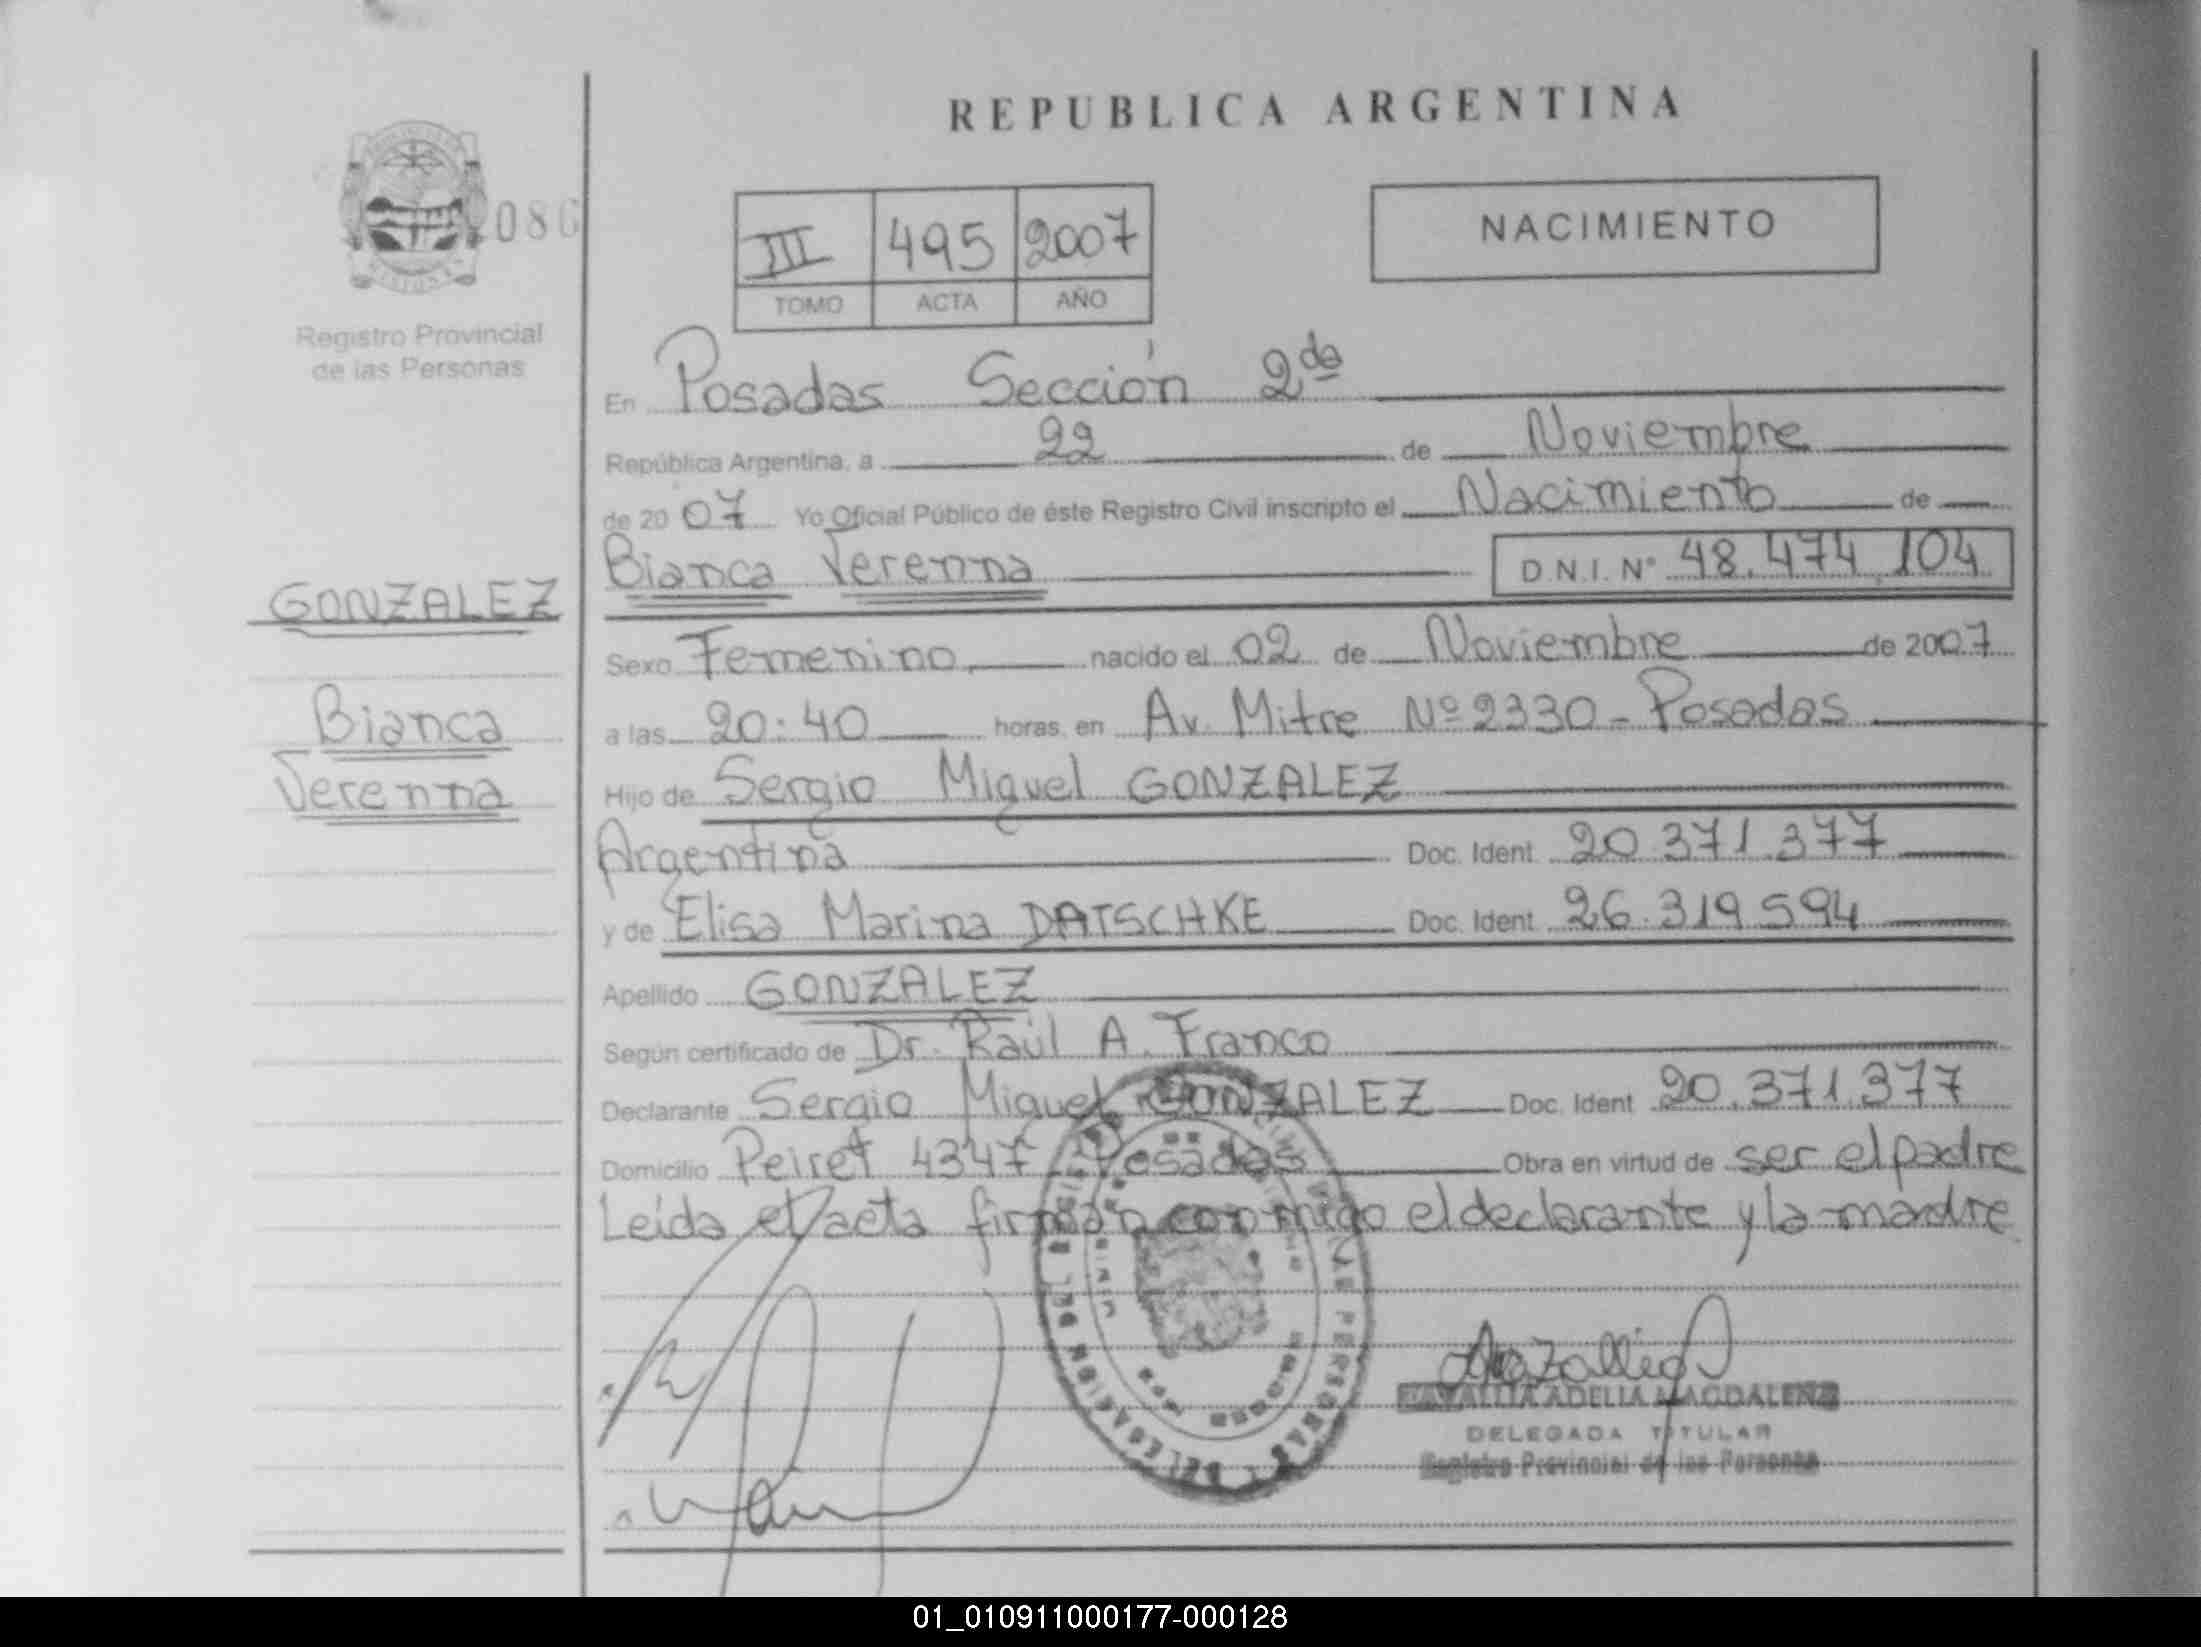 REPUBLICA ARGENTINA
NACIMIENTO
086
III 495 2007
TOMO ACTA AÑO
Registro Provincial
de las Personas
En Posadas Sección 2da
República Argentina, a 22 de Noviembre
de 2007 Yo Oficial Público de éste Registro Civil inscripto el Nacimiento de
Bianca Verenna D.N.I. Nº 48.474.104
GONZALEZ
Sexo Femenino, nacido el 02 de Noviembre de 2007
Bianca
a las 20:40 horas, en Av. Mitre Nº 2330 - Posadas
Verenna
Hijo de Sergio Miguel GONZALEZ
Argentina Doc. Ident. 20.371.377
y de Elisa Marina DATSCHKE Doc. Ident. 26.319.594
Apellido GONZALEZ
Según certificado de Dr. Raúl A. Franco
Declarante Sergio Miguel GONZALEZ Doc. Ident. 20.371.377
Domicilio Peiret 4347 Posadas Obra en virtud de ser el padre
Leída el acta firman conmigo el declarante y la madre
ADELIA MAGDALENA
DELEGADA TITULAR
Registro Provincial de las Personas
01_010911000177-000128